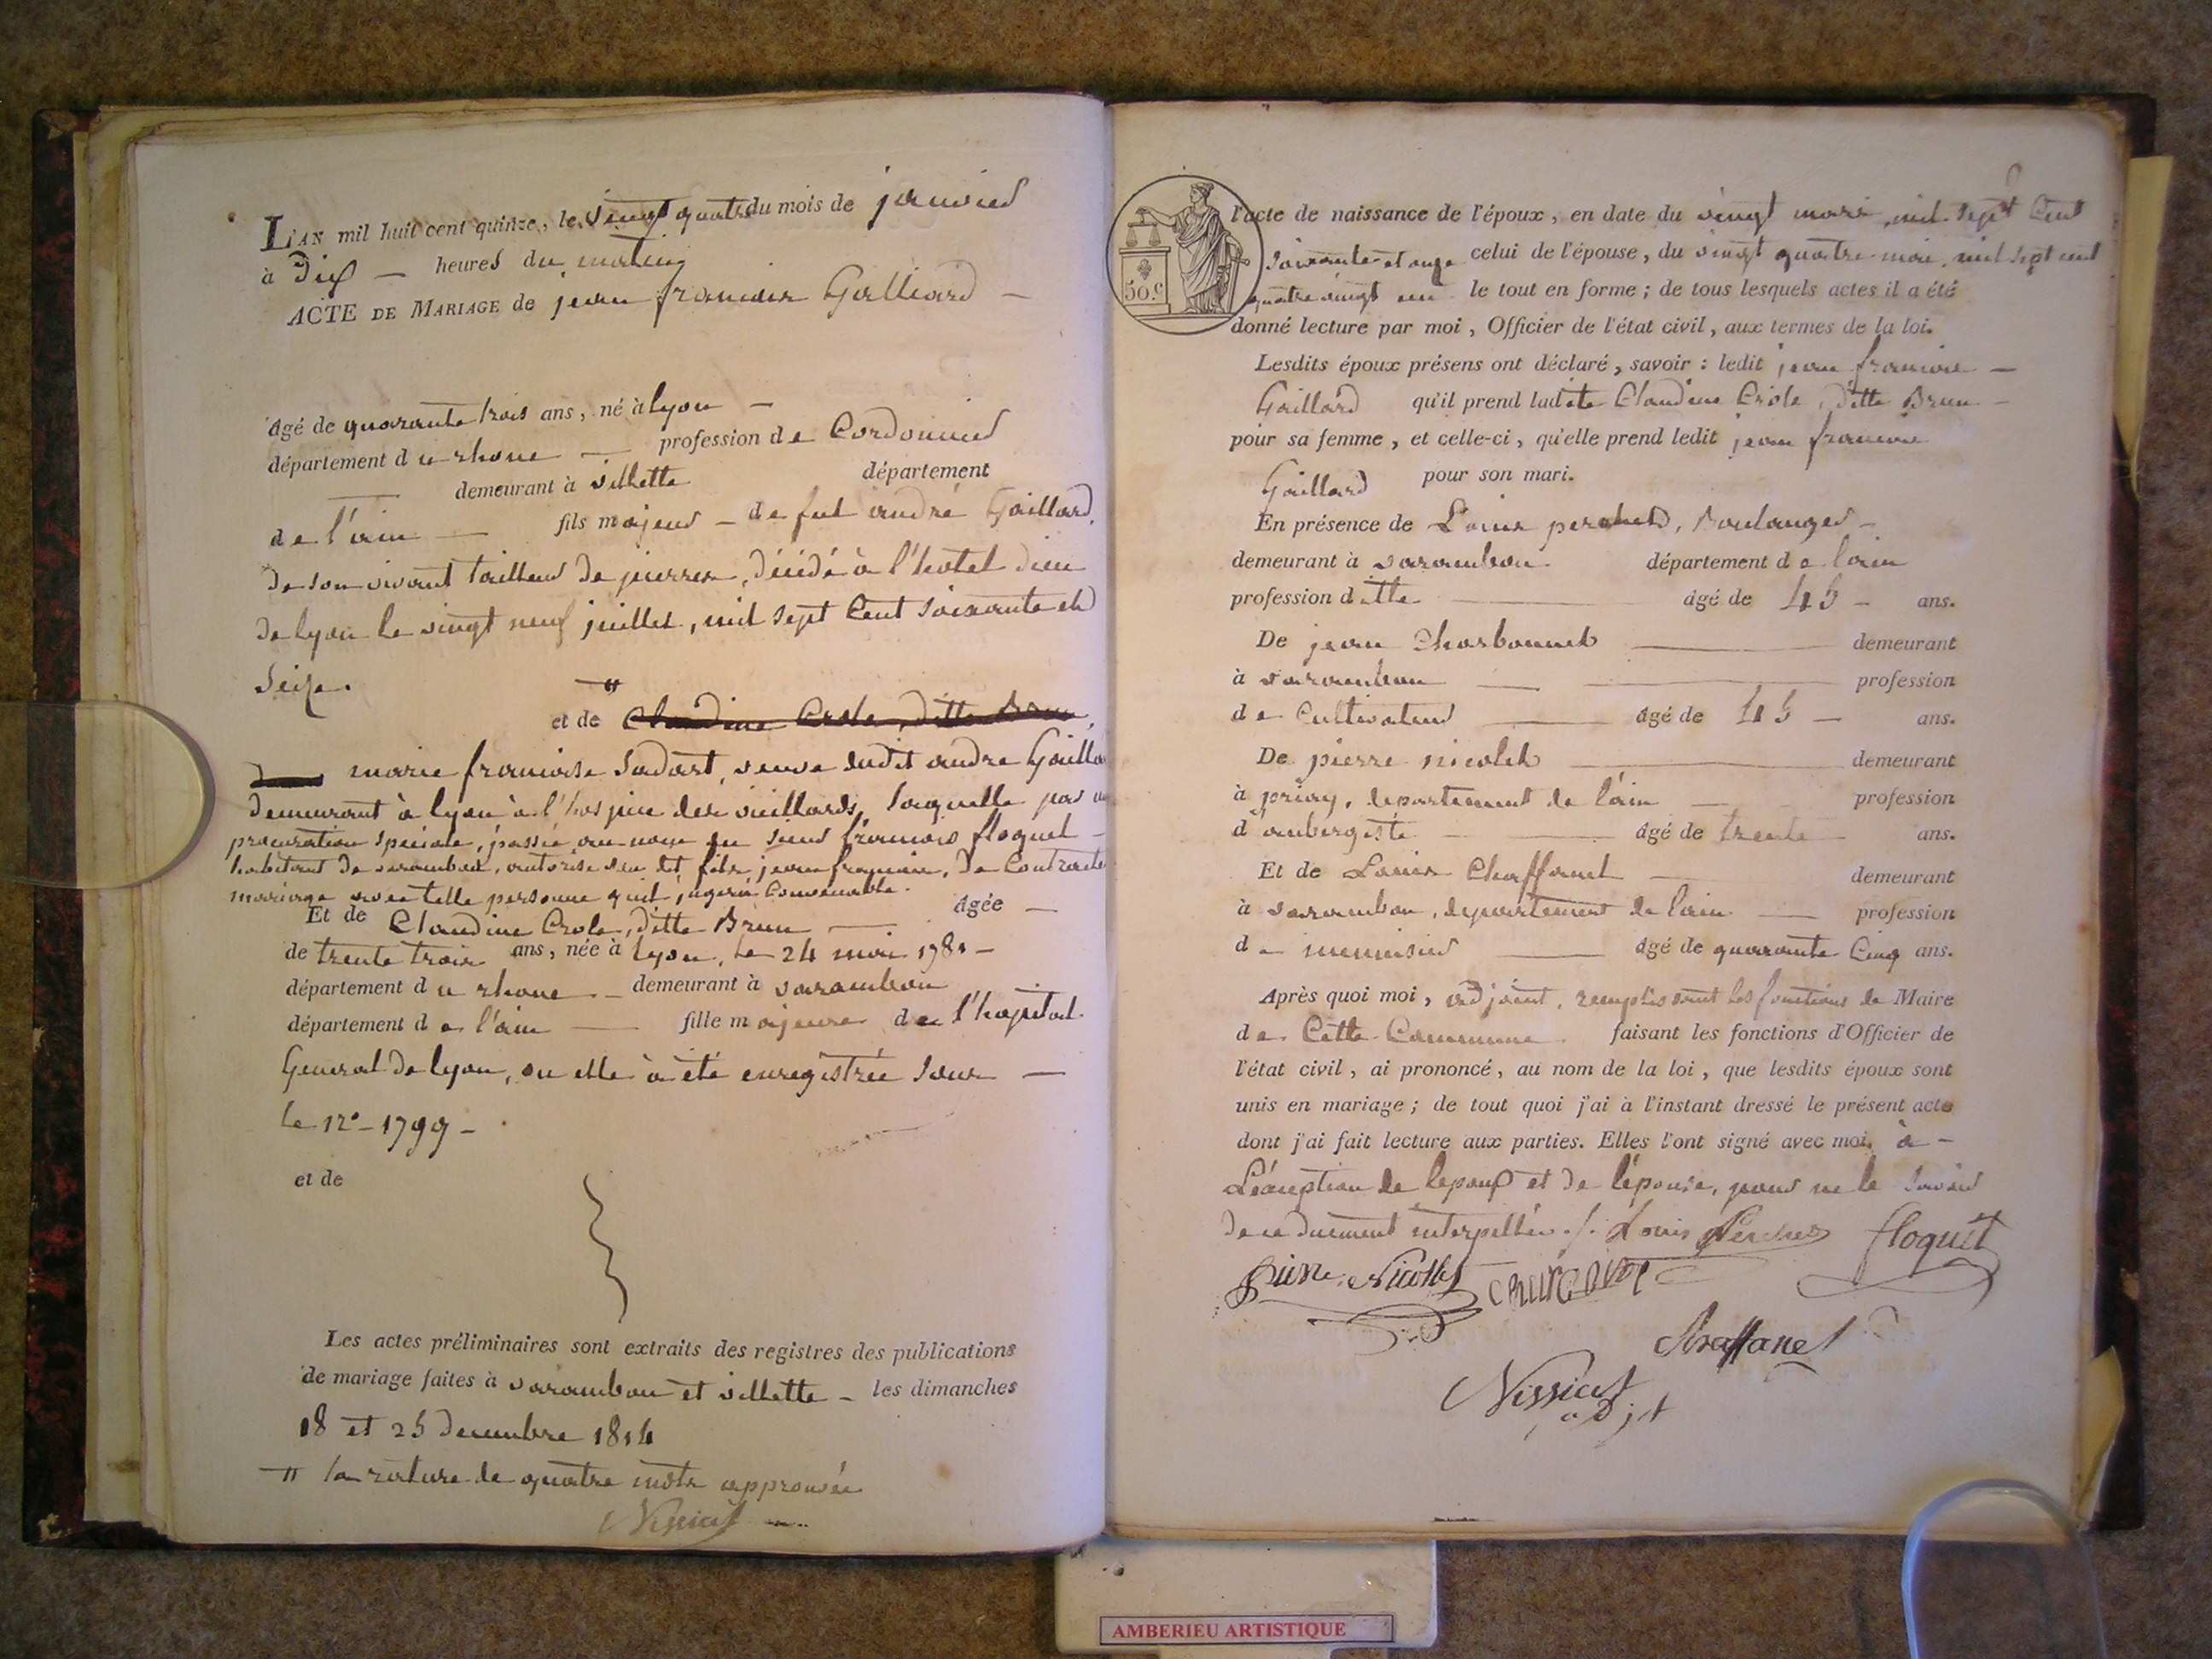 L'AN mil huit cent quinze, le vingt quatre du mois de janvier
à dix — heures du matin
ACTE DE MARIAGE de jean francois Galliard —
âgé de quarante trois ans, né à lyon —
département du rhone — profession de Cordonnier
demeurant à villette département
de l'ain — fils majeur — de fut andré Gaillard,
de son vivant tailleur de pierres, décidé à l'hotel dieu
de lyon le vingt neuf juillet, mil sept Cent soixante et
seize.
et de Claudine Crole, ditte Brun,
marie francoise sadart, veuve dudit andre Gailla
demeurant à lyon à l'hospice des vieillards, laquelle par
procuration speciale, passée au nom du sieur francois floquet —
habitant de varambon, autorise son dit fils jean francois, de Contracter
mariage avec telle personne quil jugera Convenable.
Et de Claudine Crole, ditte Brun — âgée —
de trente trois ans, née à lyon, le 24 mai 1781 —
département du rhone — demeurant à varambon
département de l'ain — fille majeure de l'hopital
General de lyon, ou elle à été enregistrée sous —
le no — 1799 —
et de
Les actes préliminaires sont extraits des registres des publications
de mariage faites à varambon et villette — les dimanches
18 et 25 decembre 1814
la rature de quatre mots approuvée
l'acte de naissance de l'époux, en date du vingt mars mil sept Cent
soixante et onze celui de l'épouse, du vingt quatre mai mil sept cent
quatre vingt un le tout en forme; de tous lesquels actes il a été
50.c
donné lecture par moi, Officier de l'état civil, aux termes de la loi.
Lesdits époux présens ont déclaré, savoir: ledit jean francois —
Gaillard qu'il prend ladite Claudine Crole, ditte Brun —
pour sa femme, et celle-ci, qu'elle prend ledit jean francois
Gaillard pour son mari.
En présence de Louis perchet, Boulanger —
demeurant à varambon département de lain
profession ditte — âgé de 45 — ans.
De jean Charbonnet — demeurant
à varambon — profession
de Cultivateur — âgé de 45 — ans.
De pierre nicolet — demeurant
à priay, departement de lain — profession
d'aubergiste — âgé de trente — ans.
Et de Louis Chaffanet — demeurant
à varambon, departement de lain — profession
de menuisier — âgé de quarante Cinq ans.
Après quoi moi, adjoint, remplissant les fonctions de Maire
de Cette Commune faisant les fonctions d'Officier de
l'état civil, ai prononcé, au nom de la loi, que lesdits époux sont
unis en mariage; de tout quoi j'ai à l'instant dressé le présent acte
dont j'ai fait lecture aux parties. Elles l'ont signé avec moi, à —
L'éxception de lepoux et de l'épouse, pour ne le savoir
de ce duement interpellés ./. Louis Perchet floquet
Pierre Nicollet
Chaffanet
adjt
AMBERIEU ARTISTIQUE